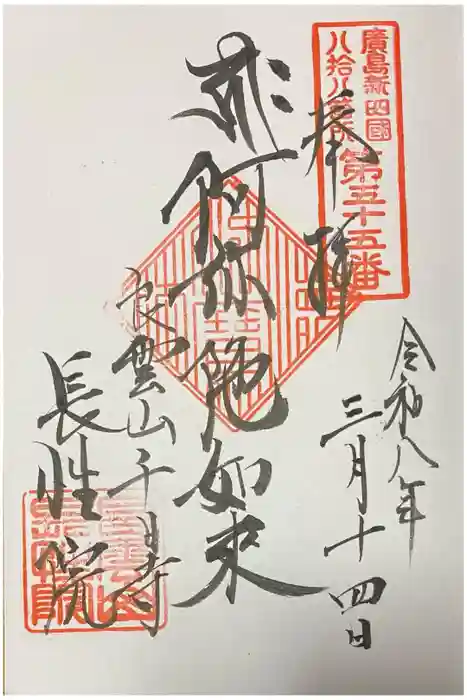 廣島新四國
八拾八ヶ所
第五十五番
奉拝
令和八年
三月十四日
阿弥陀如来
良雲山千日寺
長性院